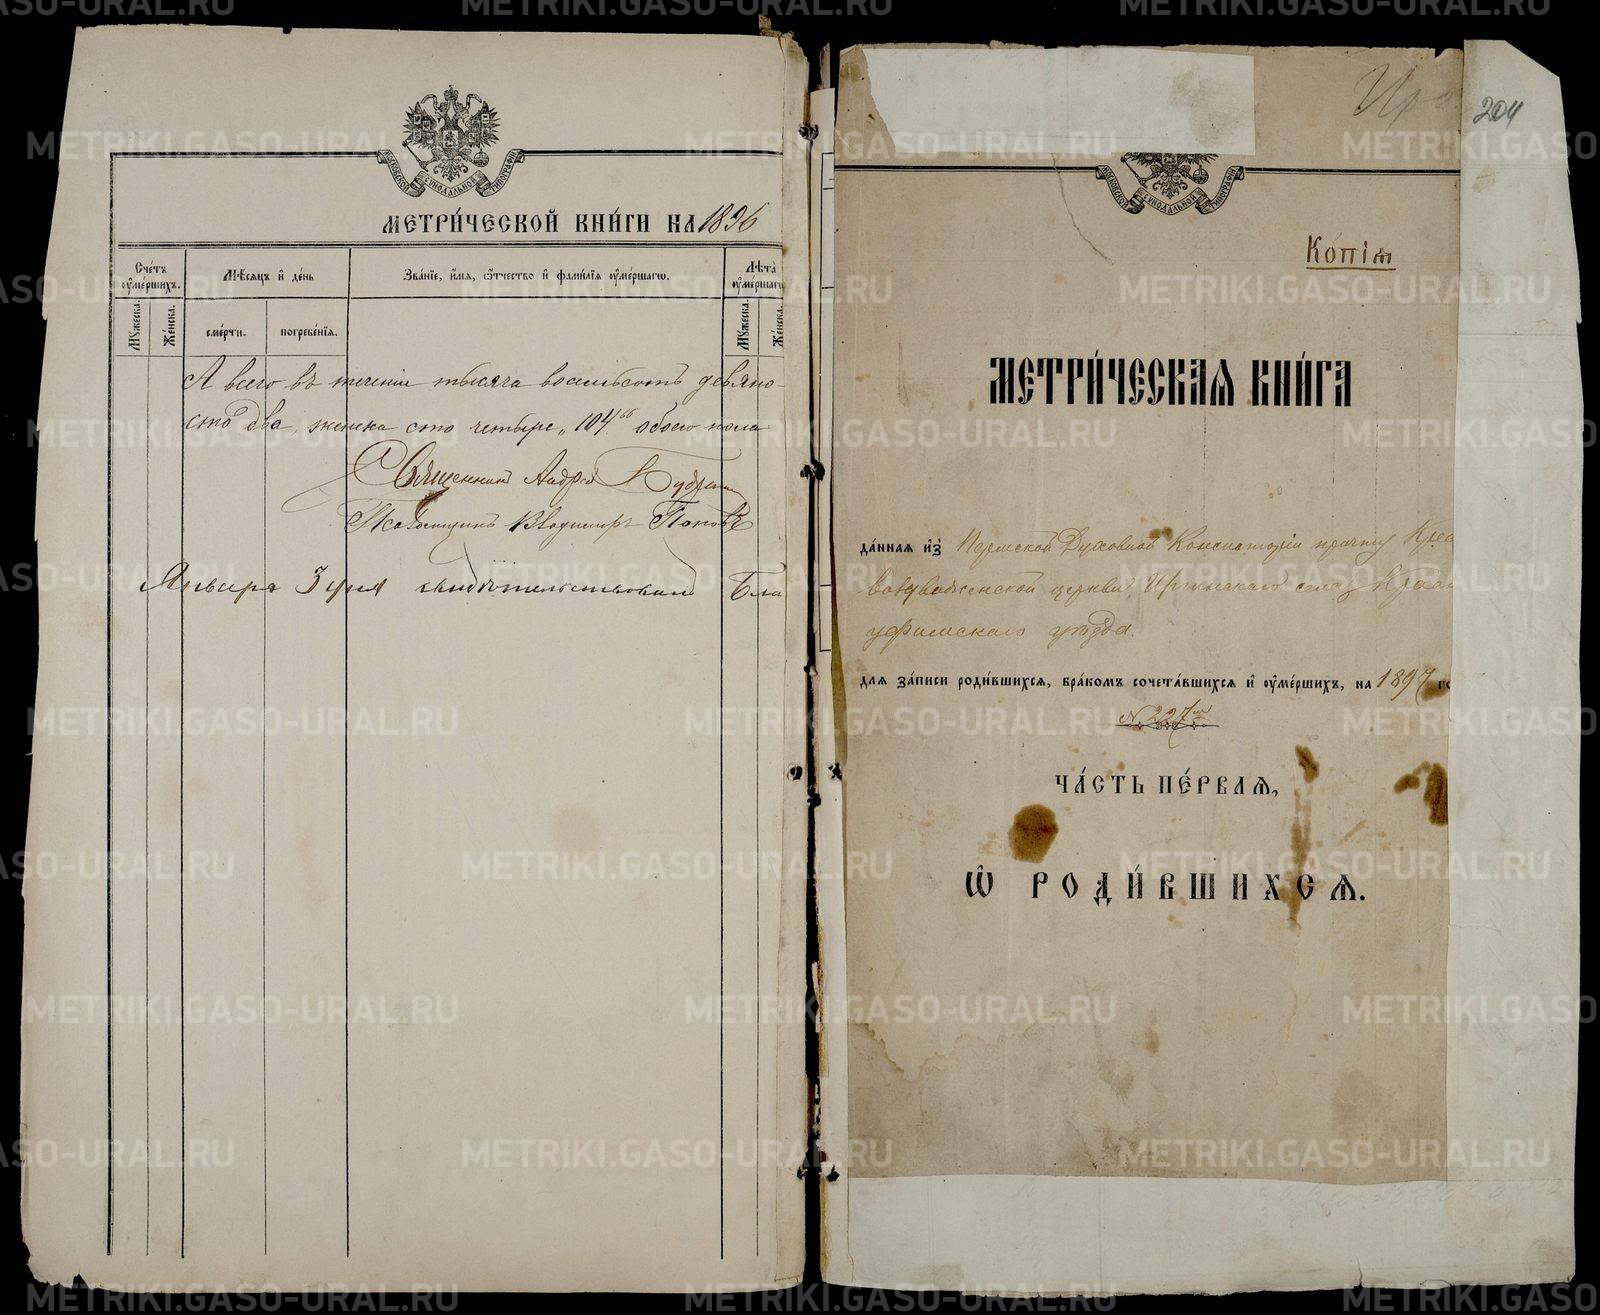 МОСКОВСКОЙ СѴНОДАЛЬНОЙ ТИПОГРАФІИ
МЕТРИ́ЧЕСКОЙ КНИ́ГИ НА 1896
Сче́тъ оу҆ме́ршихъ.
Мѣ́сяцъ и҆ де́нь
Зва́ніе, и҆́мя, ѻ҆́тчество и҆ фами́лія оу҆ме́ршагѡ.
Лѣта̀ оу҆ме́ршагѡ
Мꙋ́жеска.
Же́нска.
сме́рти.
погребе́нія.
Мꙋ́жеска.
Же́нска.
А всего въ теченіи тысяча восемьсотъ девяно-
сто два, женска сто четыре „104“ обоего пола
Священникъ Андрей
Псаломщикъ Владиміръ Поповъ
Января 3 дня свидѣтельствовалъ Бла
204
МОСКОВСКОЙ СѴНОДАЛЬНОЙ ТИПОГРАФІИ
Копія
МЕТРИ́ЧЕСКАѦ КНИ́ГА
да́нная и҆з̾ Пермской Духовной Консисторіи причту Крес
товоздвиженской церкви Иргинскаго села, Красно
уфимскаго уѣзда.
для за́писи роди́вшихся, бра́комъ сочета́вшихся и҆ оу҆ме́ршихъ, на 1897 го
№ 227
ЧА́СТЬ ПЕ́РВАѦ,
Ѡ҆ РОДИ́ВШИХСѦ.
METRIKI.GASO-URAL.RU